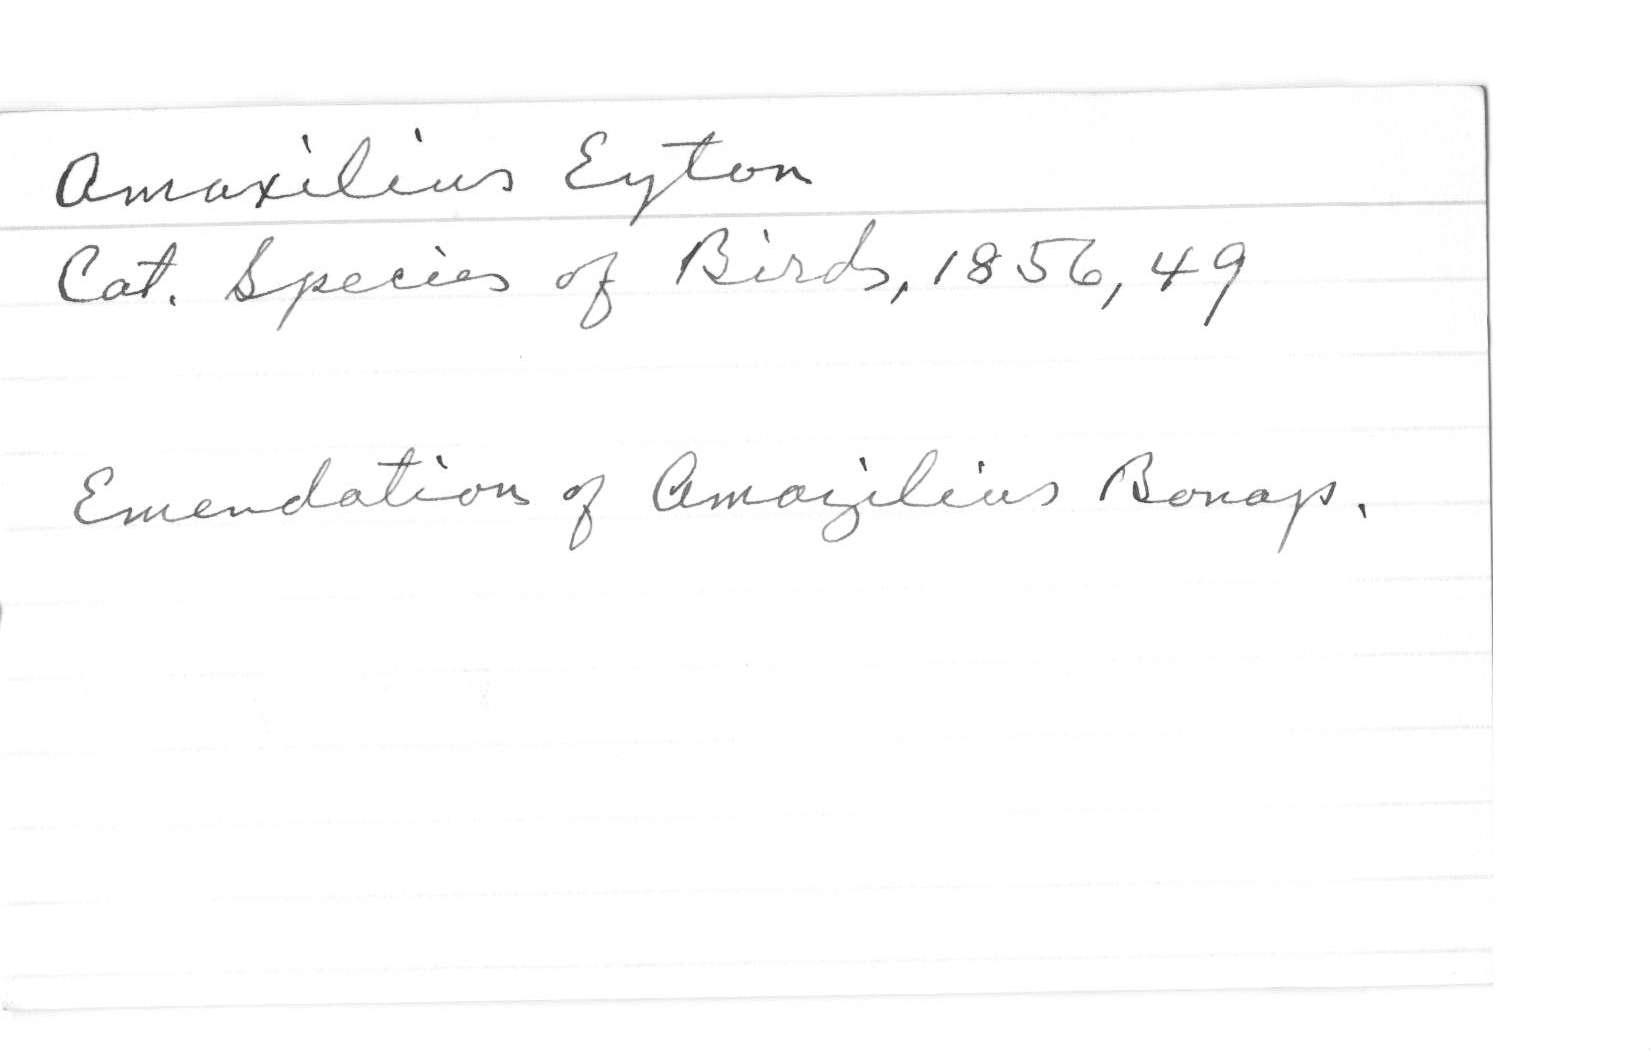 Amaxilius Eyton
Cat. Species of Birds, 1856, 49
Emendation of Amazilius Bonap.